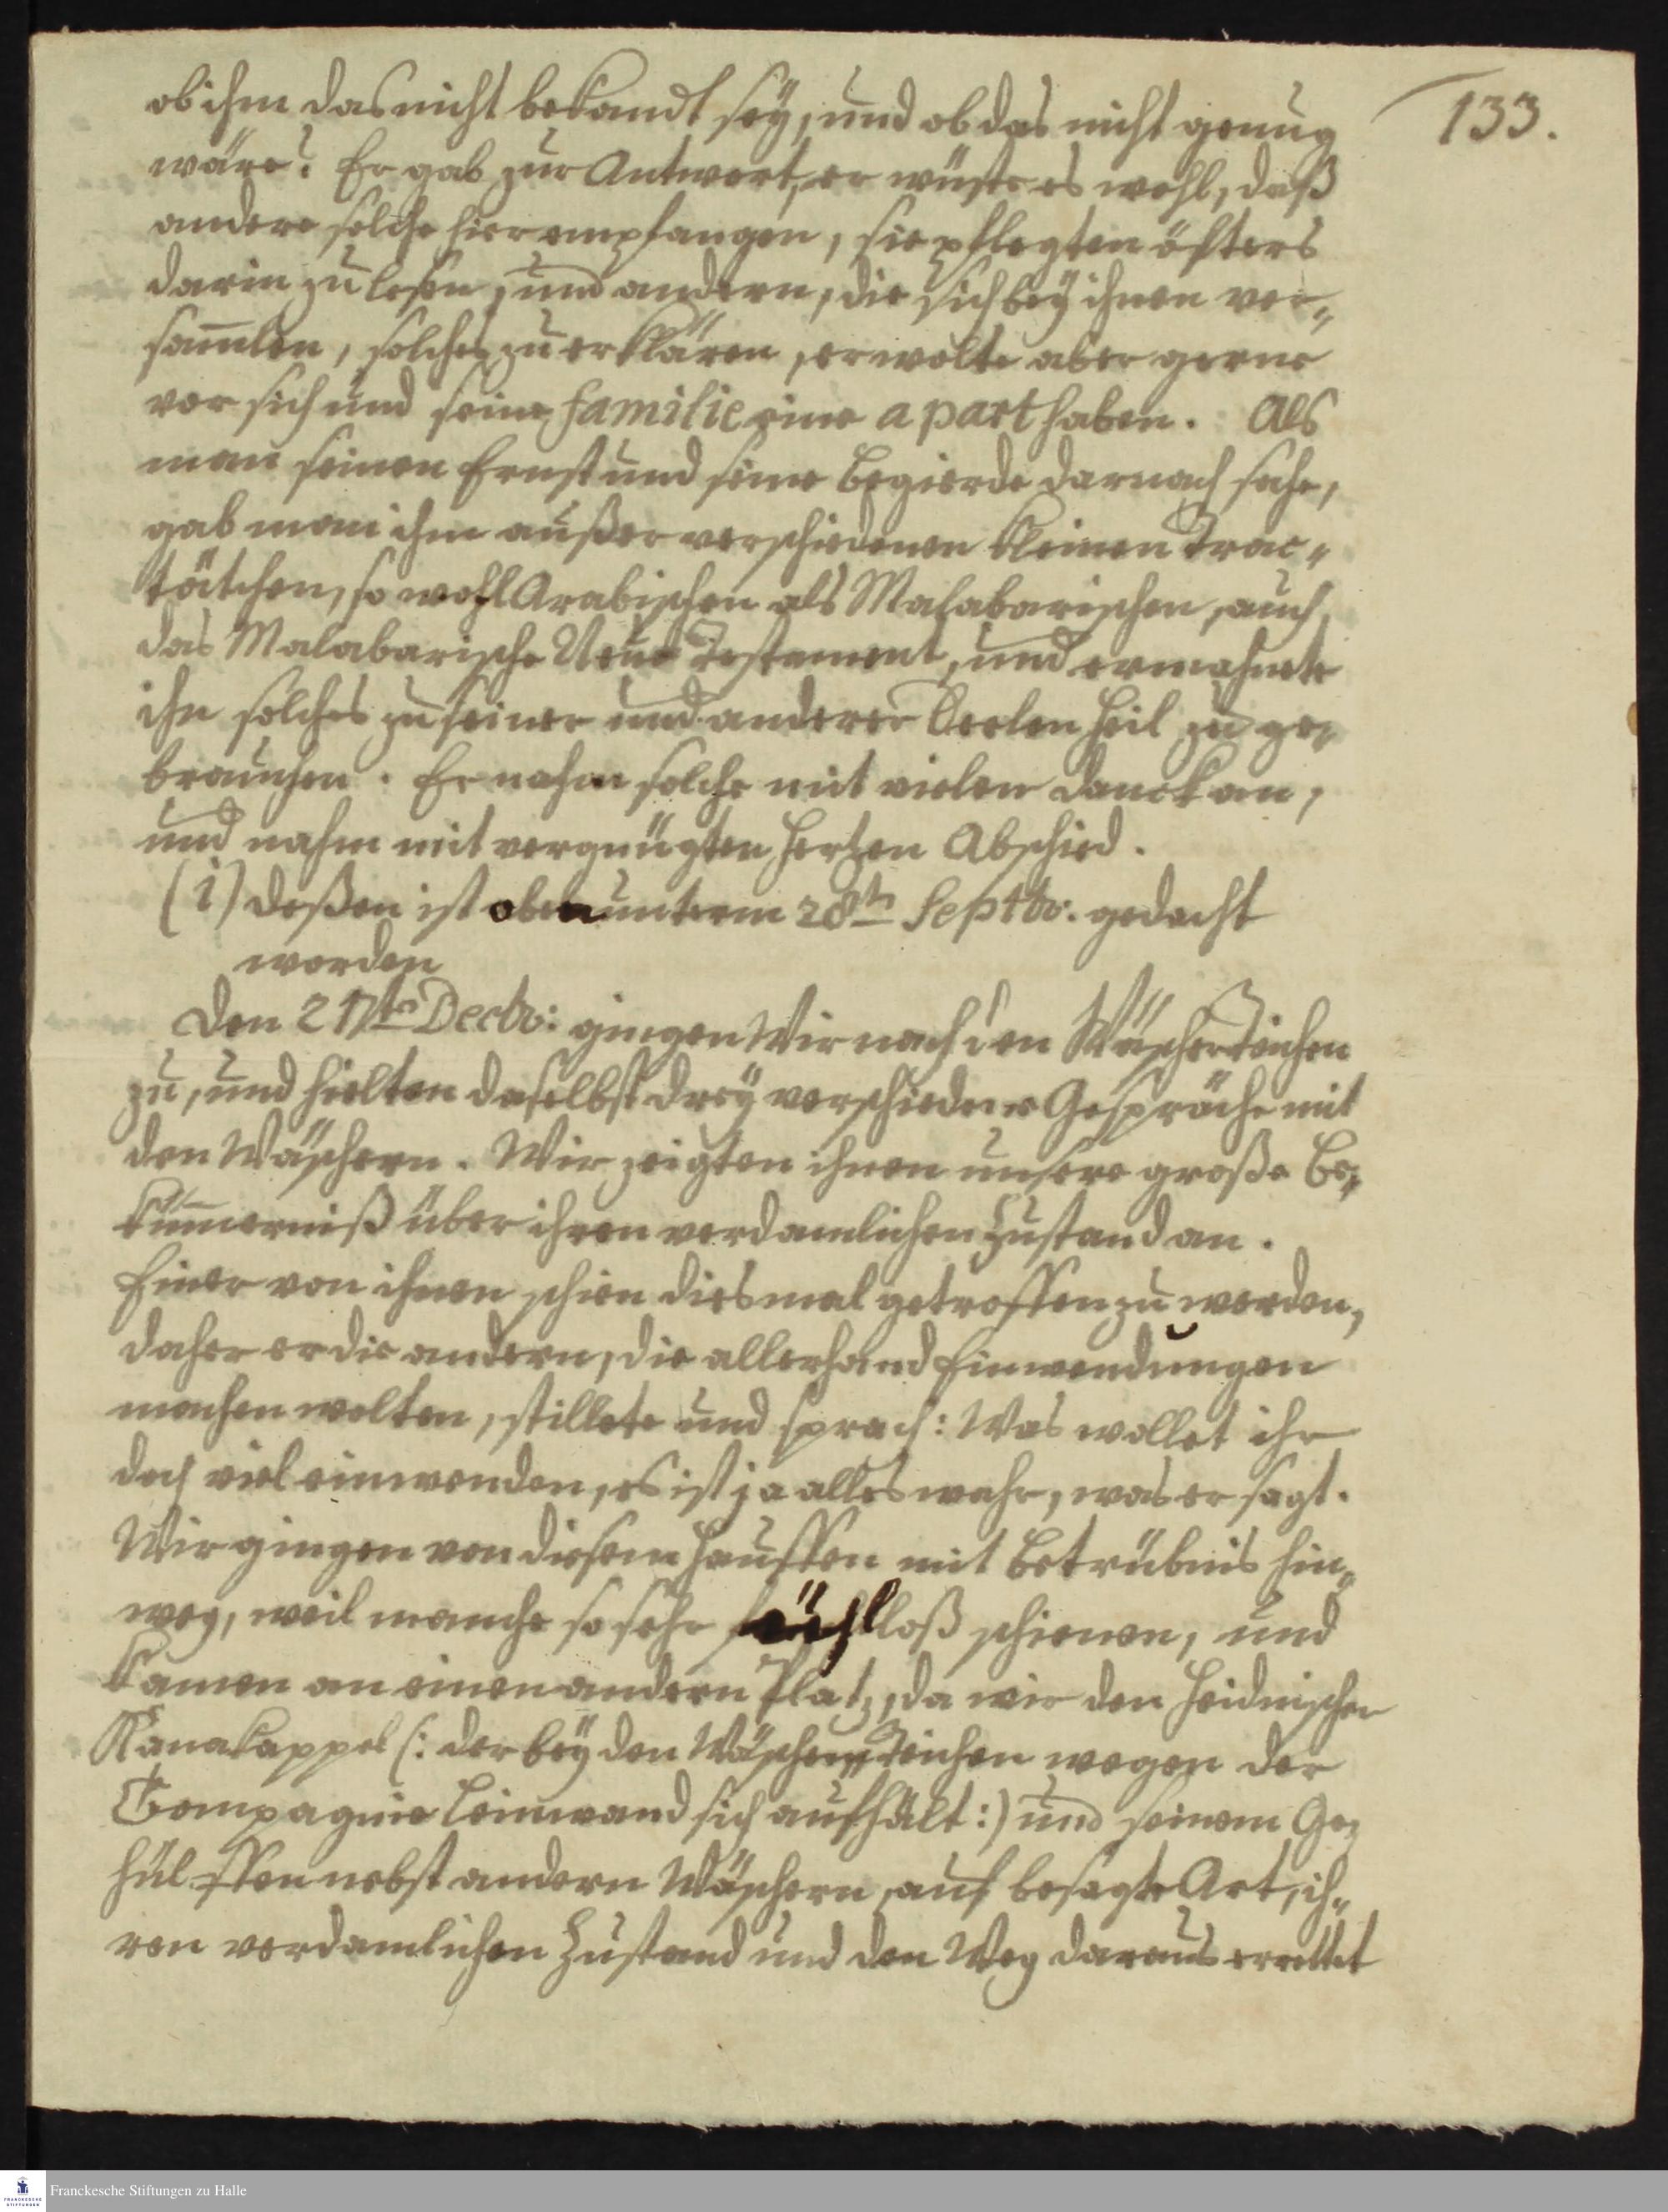 133.
ob ihm das nicht bekandt sey, und ob das nicht genug
wäre? Er gab zur Antwort, er wüste es wohl, daß
andere solche hier empfangen, sie pflegten öfters
darin zu lesen, und andern, die sich bey ihnen ver„
sam̄len, solches zu erklären, er wolte aber gerne
vor sich und seine familie eine apart haben. Als
man seinen Ernst und seine Begierde darnach sahe,
gab man ihm außer verschiedenen kleinen Trac„
tätchen, so wohl Arabischen als Malabarischen, auch
das Malabarische Neue Testament, und ermahnete
ihn solches zu seiner und anderer Seelen Heil zu ge„
brauchen. Er nahm solche mit vielen Danck an,
und nahm mit vergnügten Hertzen Abschied.
(i) deßen ist oben unterm 28ten Septbr. gedacht
worden
Den 21ten Decbr: gingen Wir nach den Wäscher Teichen
zu, und hielten daselbst drey verschiedene Gespräche mit
den Wäschern. Wir zeigten ihnen unsere große Be„
küm̄erniß über ihren verdamlichen Zustand an.
Einer von ihnen schien diesmal getroffen zu werden,
daher er die andern, die allerhand Einwendungen
machen wolten, stillete und sprach: Was wollet ihr
doch viel einwenden, es ist ja alles wahr, was er sagt.
Wir gingen von diesem Hauffen mit Betrübnis hin„
weg, weil manche so sehr fühlloß schienen, und
kamen an einen andern Platz, da wir den Heidnischen
Kanakappel (: der bey den Wäscher„Teichen wegen der
Compagnie Leinwand sich aufhält :) und seinem Ge„
hülffen nebst andern Wäschern, auf besagte Art, ih„
ren verdamlichen Zustand und den Weg daraus errettet
Franckesche Stiftungen zu Halle